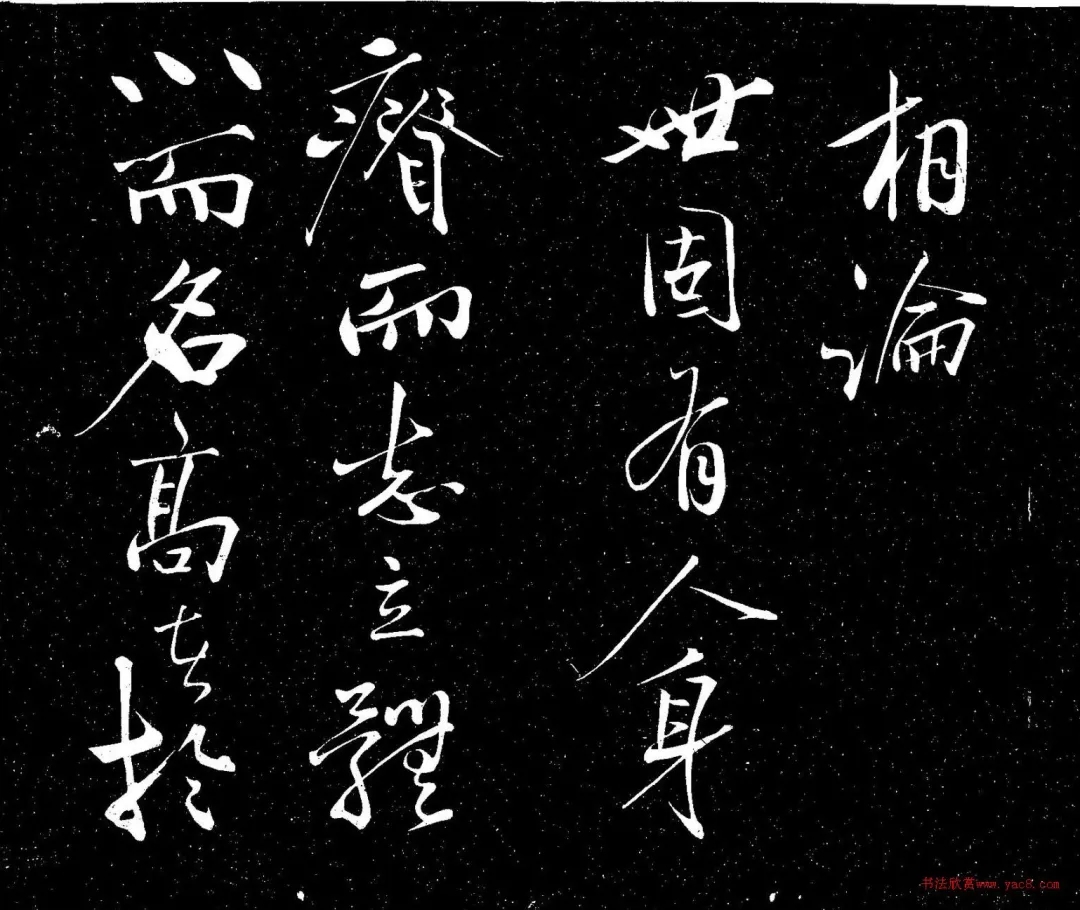 相論
世固有人身
瘠而志立體
小而名高者於
书法欣赏www.yac8.com